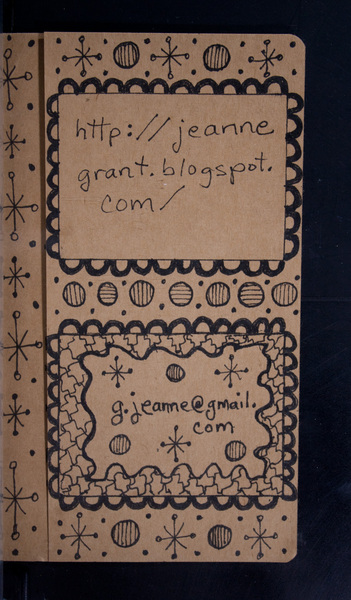 http://jeanne
grant.blogspot.
com/
g.jeanne@gmail.
com